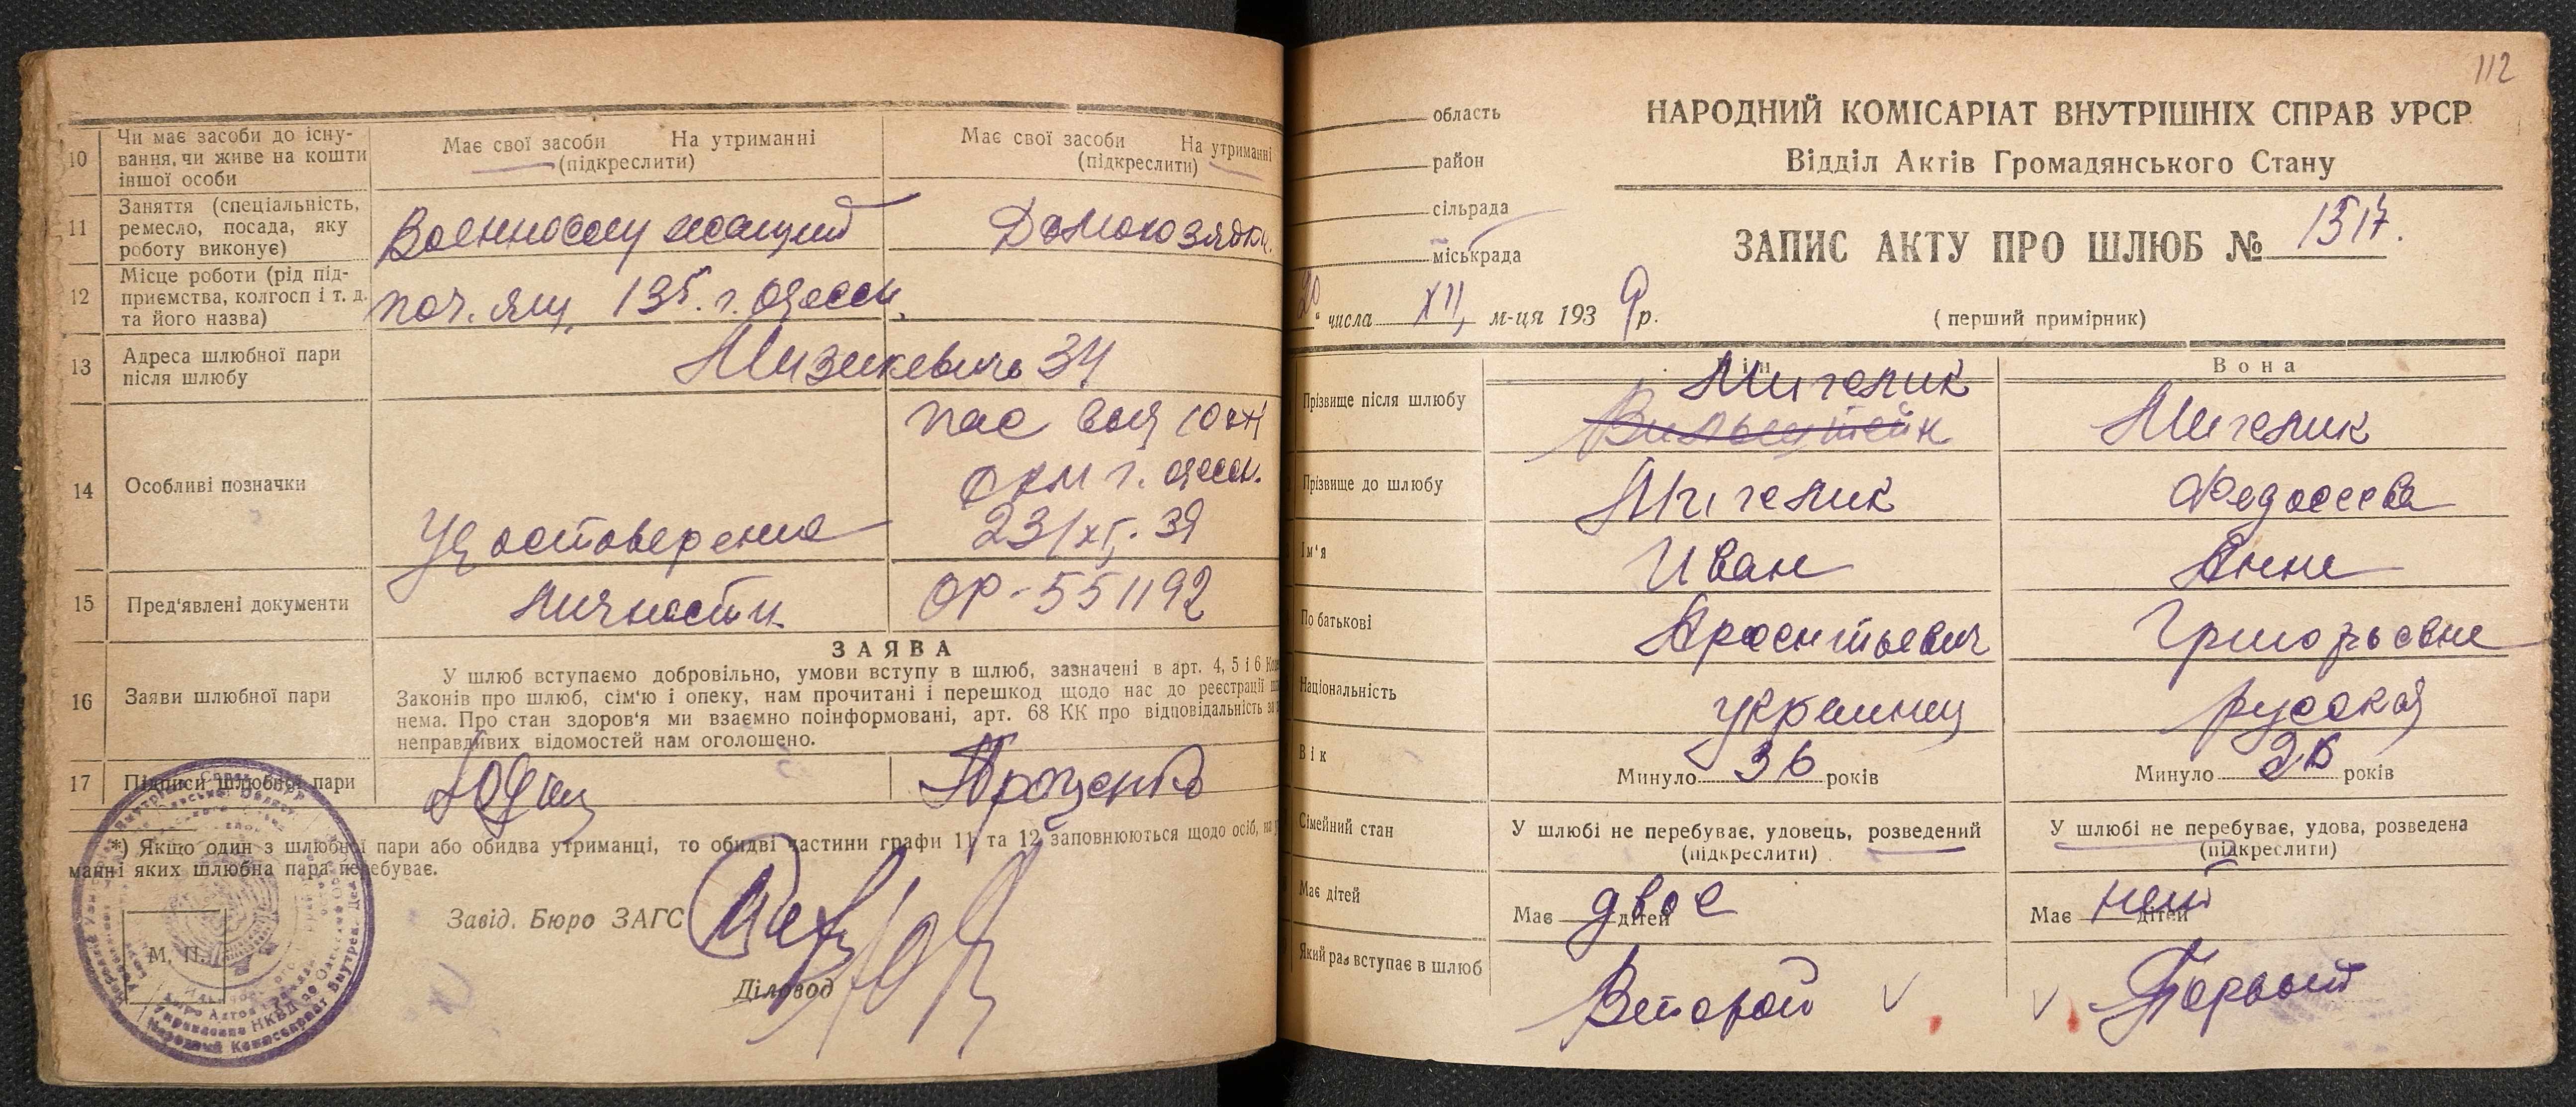 10
Чи має засоби до існу-
вання, чи живе на кошти
іншої особи
Має свої засоби На утриманні
(підкреслити)
Має свої засоби На утриманні
(підкреслити)
11
Заняття (спеціальність,
ремесло, посада, яку
роботу виконує)
Военнослужащий
Домохозяйк.
12
Місце роботи (рід під-
приємства, колгосп і т. д.
та його назва)
поч. ящ. 135. г. Одесса
13
Адреса шлюбної пари
після шлюбу
Мизикевича 34
14
Особливі позначки
пас выд 10 отд
г. Одесс.
23/XI.39
15
Пред'явлені документи
Удостоверение
личности.
ОР-551192
16
Заяви шлюбної пари
ЗАЯВА
У шлюб вступаємо добровільно, умови вступу в шлюб, зазначені в арт. 4, 5 і 6
Законів про шлюб, сім'ю і опеку, нам прочитані і перешкод щодо нас до реєстрації
нема. Про стан здоров'я ми взаємно поінформовані, арт. 68 КК про відповідальність за
неправдивих відомостей нам оголошено.
17
Підписи шлюбної пари
*) Якщо один з шлюбної пари або обидва утриманці, то обидві частини графи 11 та 12 заповнюються щодо осіб, на
манні яких шлюбна пара перебуває.
Завід. Бюро ЗАГС
Діловод
М. П.
112
область
район
сільрада
міськрада
НАРОДНИЙ КОМІСАРІАТ ВНУТРІШНІХ СПРАВ УРСР
Відділ Актів Громадянського Стану
ЗАПИС АКТУ ПРО ШЛЮБ № 1517.
20 " числа XII, м-ця 1939 р.
(перший примірник)
Він
Вона
Прізвище після шлюбу
Мигелик
Мигелик
Прізвище до шлюбу
Мигелик
Федосеева
Ім'я
Иван
Анна
По батькові
Арсентьевич
Григорьевна
Національність
украинец
русская
Вік
Минуло 36 років
Минуло років
Сімейний стан
У шлюбі не перебуває, удовець, розведений
(підкреслити)
У шлюбі не перебуває, удова, розведена
(підкреслити)
Має дітей
Має двое дітей
Має нет дітей
Який раз вступає в шлюб
Второй
Первый